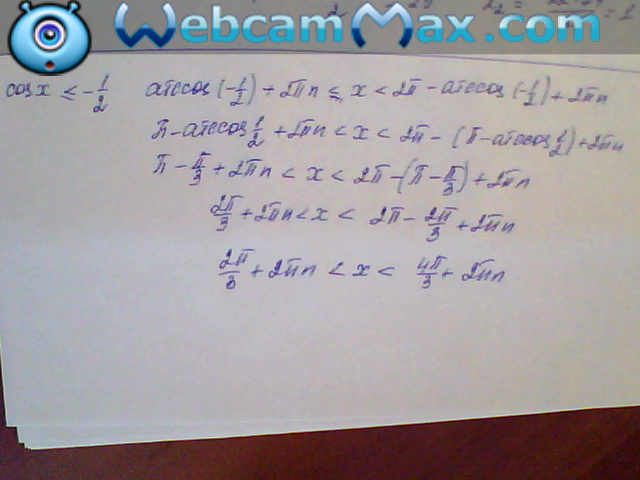 WebcamMax.com
cos x ≤ -1/2 arccos(-1/2) + 2πn ≤ x < 2π - arccos(-1/2) + 2πn
π - arccos 1/2 + 2πn < x < 2π - (π - arccos 1/2) + 2πn
π - π/3 + 2πn < x < 2π - (π - π/3) + 2πn
2π/3 + 2πn < x < 2π - 2π/3 + 2πn
2π/3 + 2πn < x < 4π/3 + 2πn